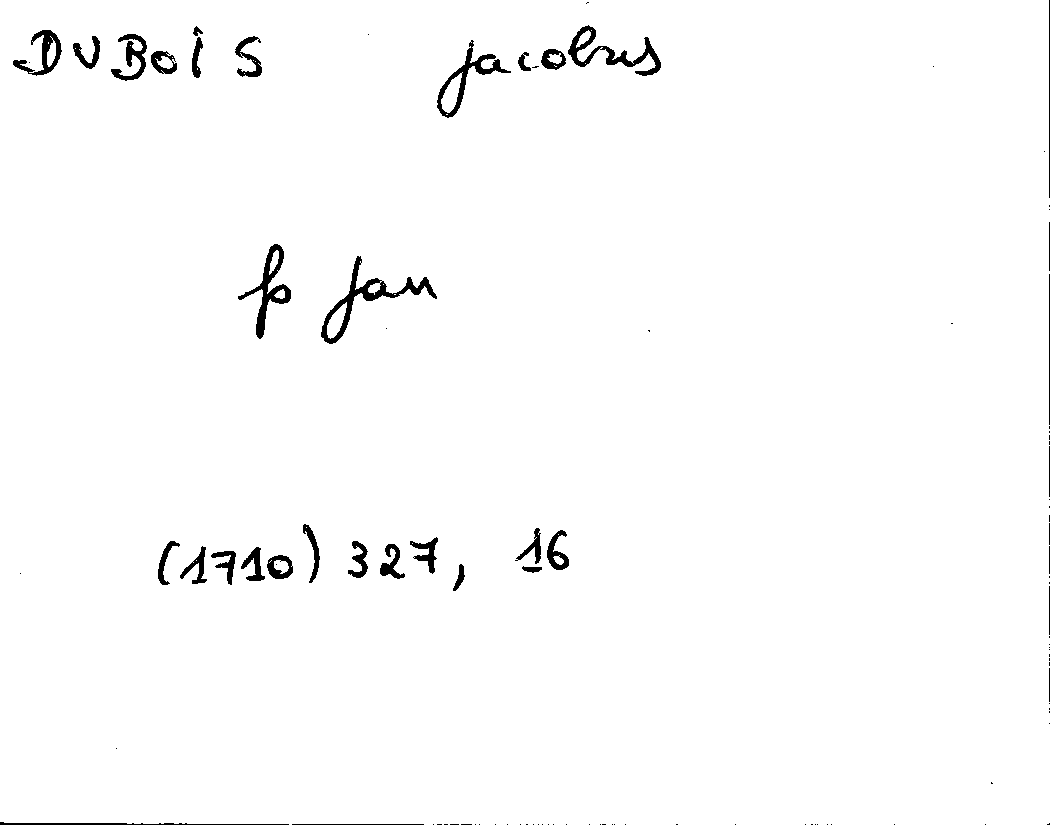 DUBOIS jacobus
fs jan
(1710) 327, 16